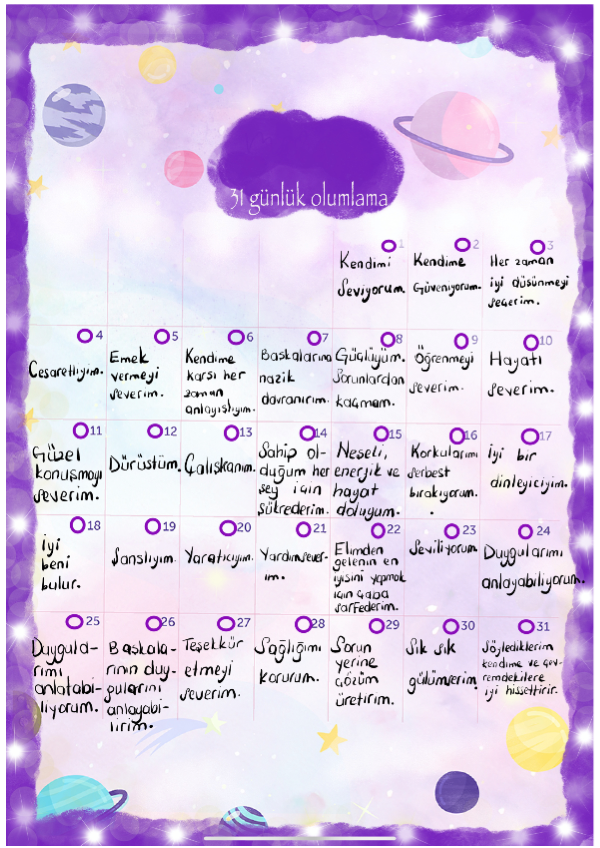 31 günlük olumlama
1
Kendimi
Seviyorum
2
Kendime
Güveniyorum.
3
Her zaman
iyi düşünmeyi
seçerim.
4
Cesaretliyim.
5
Emek
vermeyi
severim.
6
Kendime
karşı her
zaman
anlayışlıyım.
7
Başkalarına
nazik
davranırım.
8
Güçlüyüm.
Sorunlardan
kaçmam.
9
Öğrenmeyi
severim.
10
Hayatı
severim.
11
Güzel
konuşmayı
severim.
12
Dürüstüm.
13
Çalışkanım.
14
Sahip ol-
duğum her
şey için
şükrederim.
15
Neşeli,
enerjik ve
hayat
doluyum.
16
Korkularımı
serbest
bırakıyorum.
17
iyi bir
dinleyiciyim.
18
iyi
beni
bulur.
19
Şanslıyım.
20
Yaratıcıyım.
21
Yardımsever-
im.
22
Elimden
gelenin en
iyisini yapmak
için çaba
sarFederim.
23
Seviliyorum
24
Duygularımı
anlayabiliyorum.
25
Duygula-
rımı
anlatabi-
liyorum.
26
Başkala-
rının duy-
gularını
anlayabi-
lirim.
27
Teşekkür
etmeyi
severim.
28
Sağlığımı
korurum.
29
Sorun
yerine
çözüm
üretirim.
30
Sık sık
gülümserim.
31
Söylediklerim
kendime ve çev-
remdekilere
iyi hissettirir.